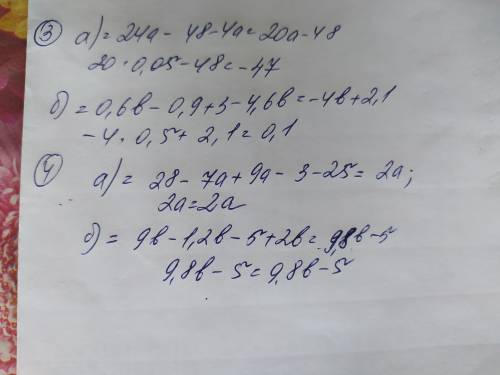 ③ а) = 24а - 48 - 4а = 20а - 48
20 · 0,05 - 48 = -47
б) = 0,6в - 0,9 + 3 - 4,6в = -4в + 2,1
-4 · 0,5 + 2,1 = 0,1
④ а) = 28 - 7а + 9а - 3 - 25 = 2а;
2а = 2а
б) = 9в - 1,2в - 5 + 2в = 9,8в - 5
9,8в - 5 = 9,8в - 5